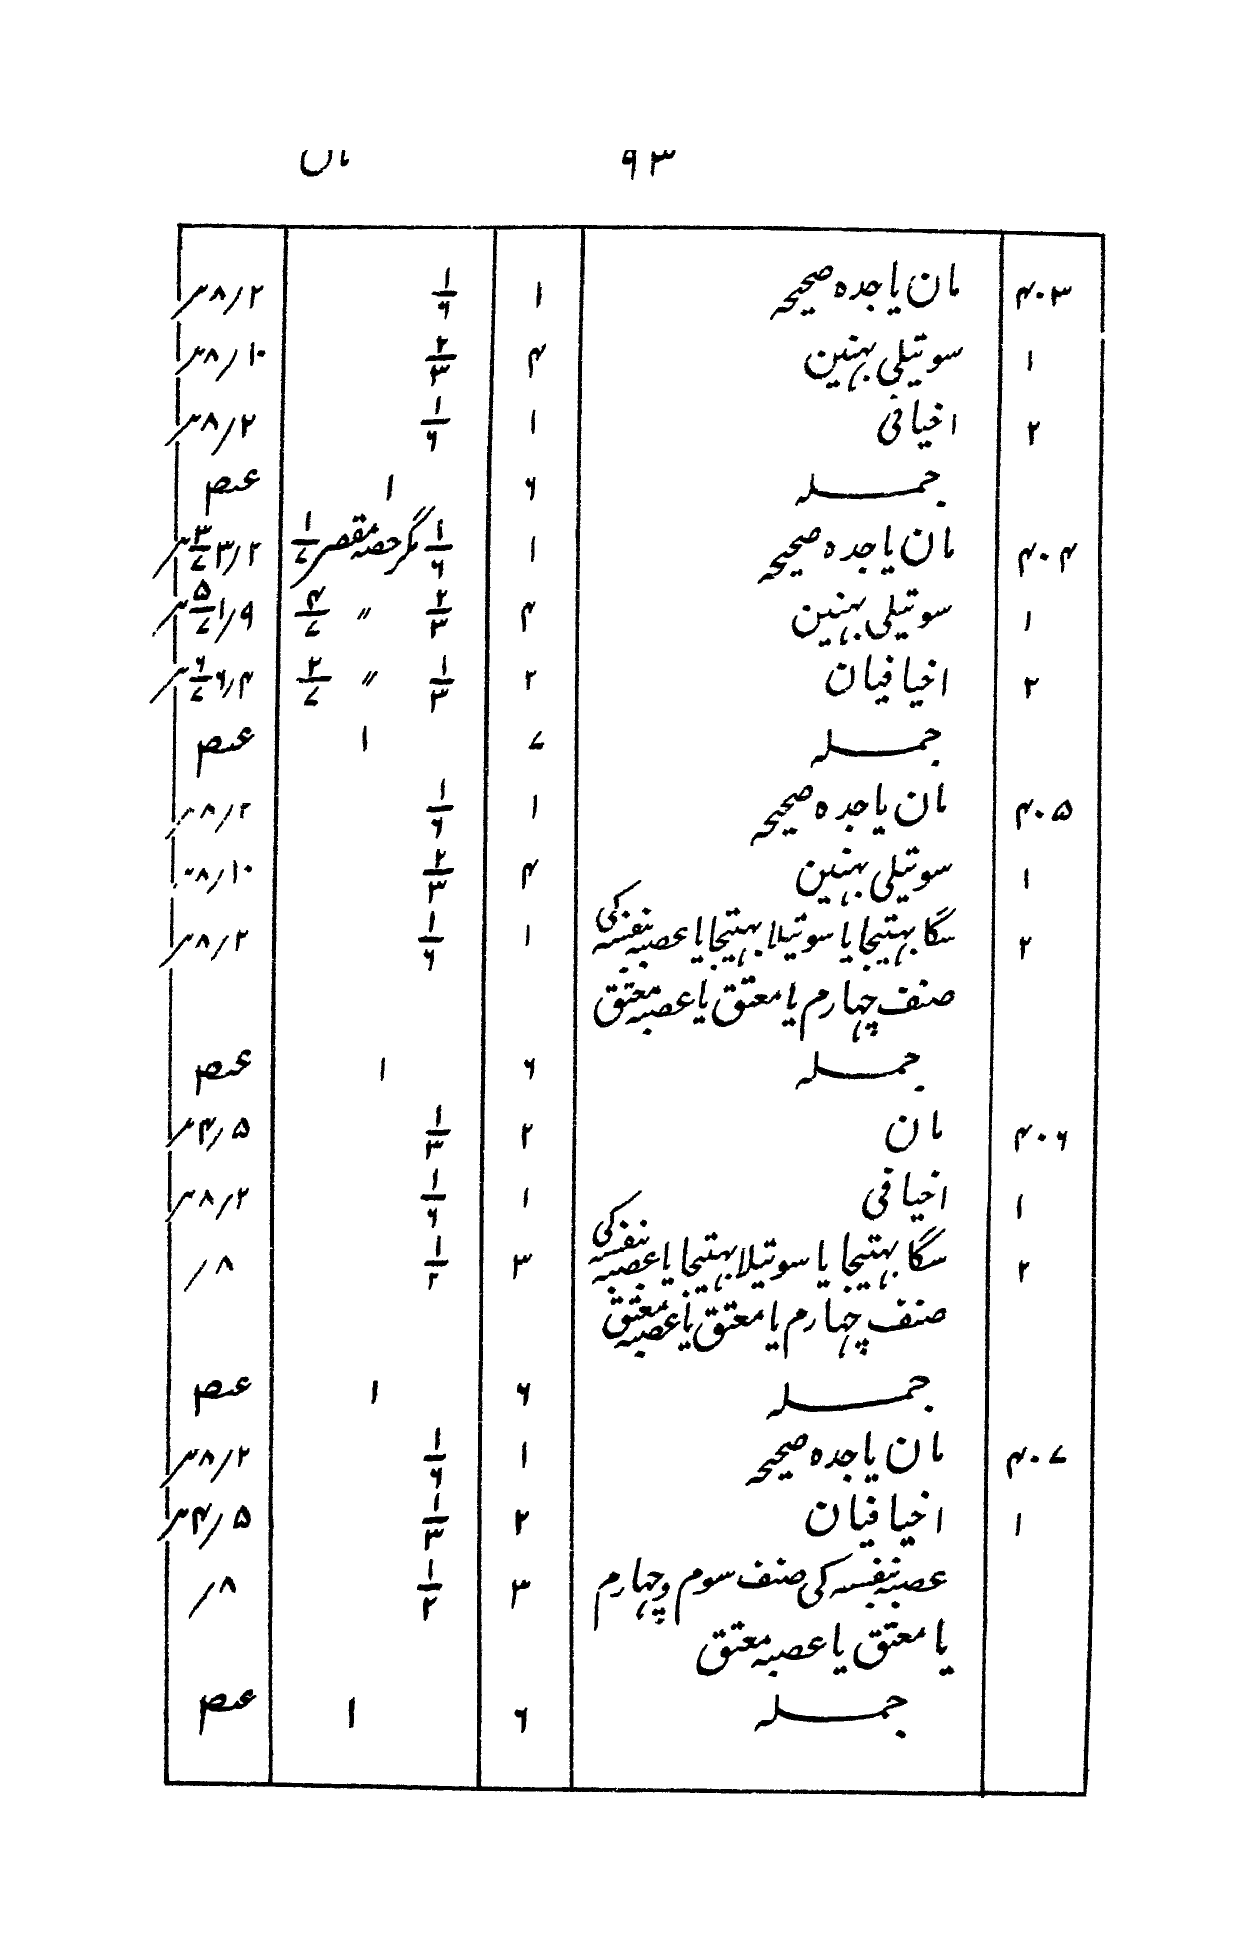 ۹۳ ماں
۴۰۳ مان یا جدہ صحیحہ ۱ ۱/۶ ۲/۸
۱ سوتیلی بہنین ۴ ۲/۳ ۱۰/۸
۲ اخیافی ۱ ۱/۶ ۲/۸
جملہ ۶ ۱ عہ
۴۰۴ مان یا جدہ صحیحہ ۱ ۱/۶ مگر حصہ مقصر ۱/۷ ۲/۳ ۳/۷
۱ سوتیلی بہنین ۴ ۲/۳ ״ ۴/۷ ۹/۱ ۵/۷
۲ اخیافیان ۲ ۱/۳ ״ ۲/۷ ۴/۶ ۶/۷
جملہ ۷ ۱ عہ
۴۰۵ مان یا جدہ صحیحہ ۱ ۱/۶ ۲/۸
۱ سوتیلی بہنین ۴ ۲/۳ ۱۰/۸
۲ سگا بہتیجا یا سوتیلا بہتیجا یا عصبہ بنفسہ کی ۱ ۱/۶ ۲/۸
صنف چہارم یا معتق یا عصبہ معتق
جملہ ۶ ۱ عہ
۴۰۶ مان ۲ ۱/۳ ۵/۴
۱ اخیافی ۱ ۱/۶ ۲/۸
۲ سگا بہتیجا یا سوتیلا بہتیجا یا عصبہ بنفسہ کی ۳ ۱/۲ ۸/
صنف چہارم یا معتق یا عصبہ معتق
جملہ ۶ ۱ عہ
۴۰۷ مان یا جدہ صحیحہ ۱ ۱/۶ ۲/۸
۱ اخیافیان ۲ ۱/۳ ۵/۴
عصبہ بنفسہ کی صنف سوم و چہارم ۳ ۱/۲ ۸/
یا معتق یا عصبہ معتق
جملہ ۶ ۱ عہ